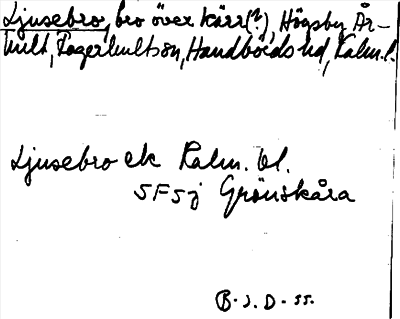 Ljusebro, bro över kärr(?), Högsby, År-
hult, Fagerhultssn, Handbörds hd, Kalm. l.
Ljusebro ek Kalm. bl.
SFSj Grönskåra
B. J. D-ss.